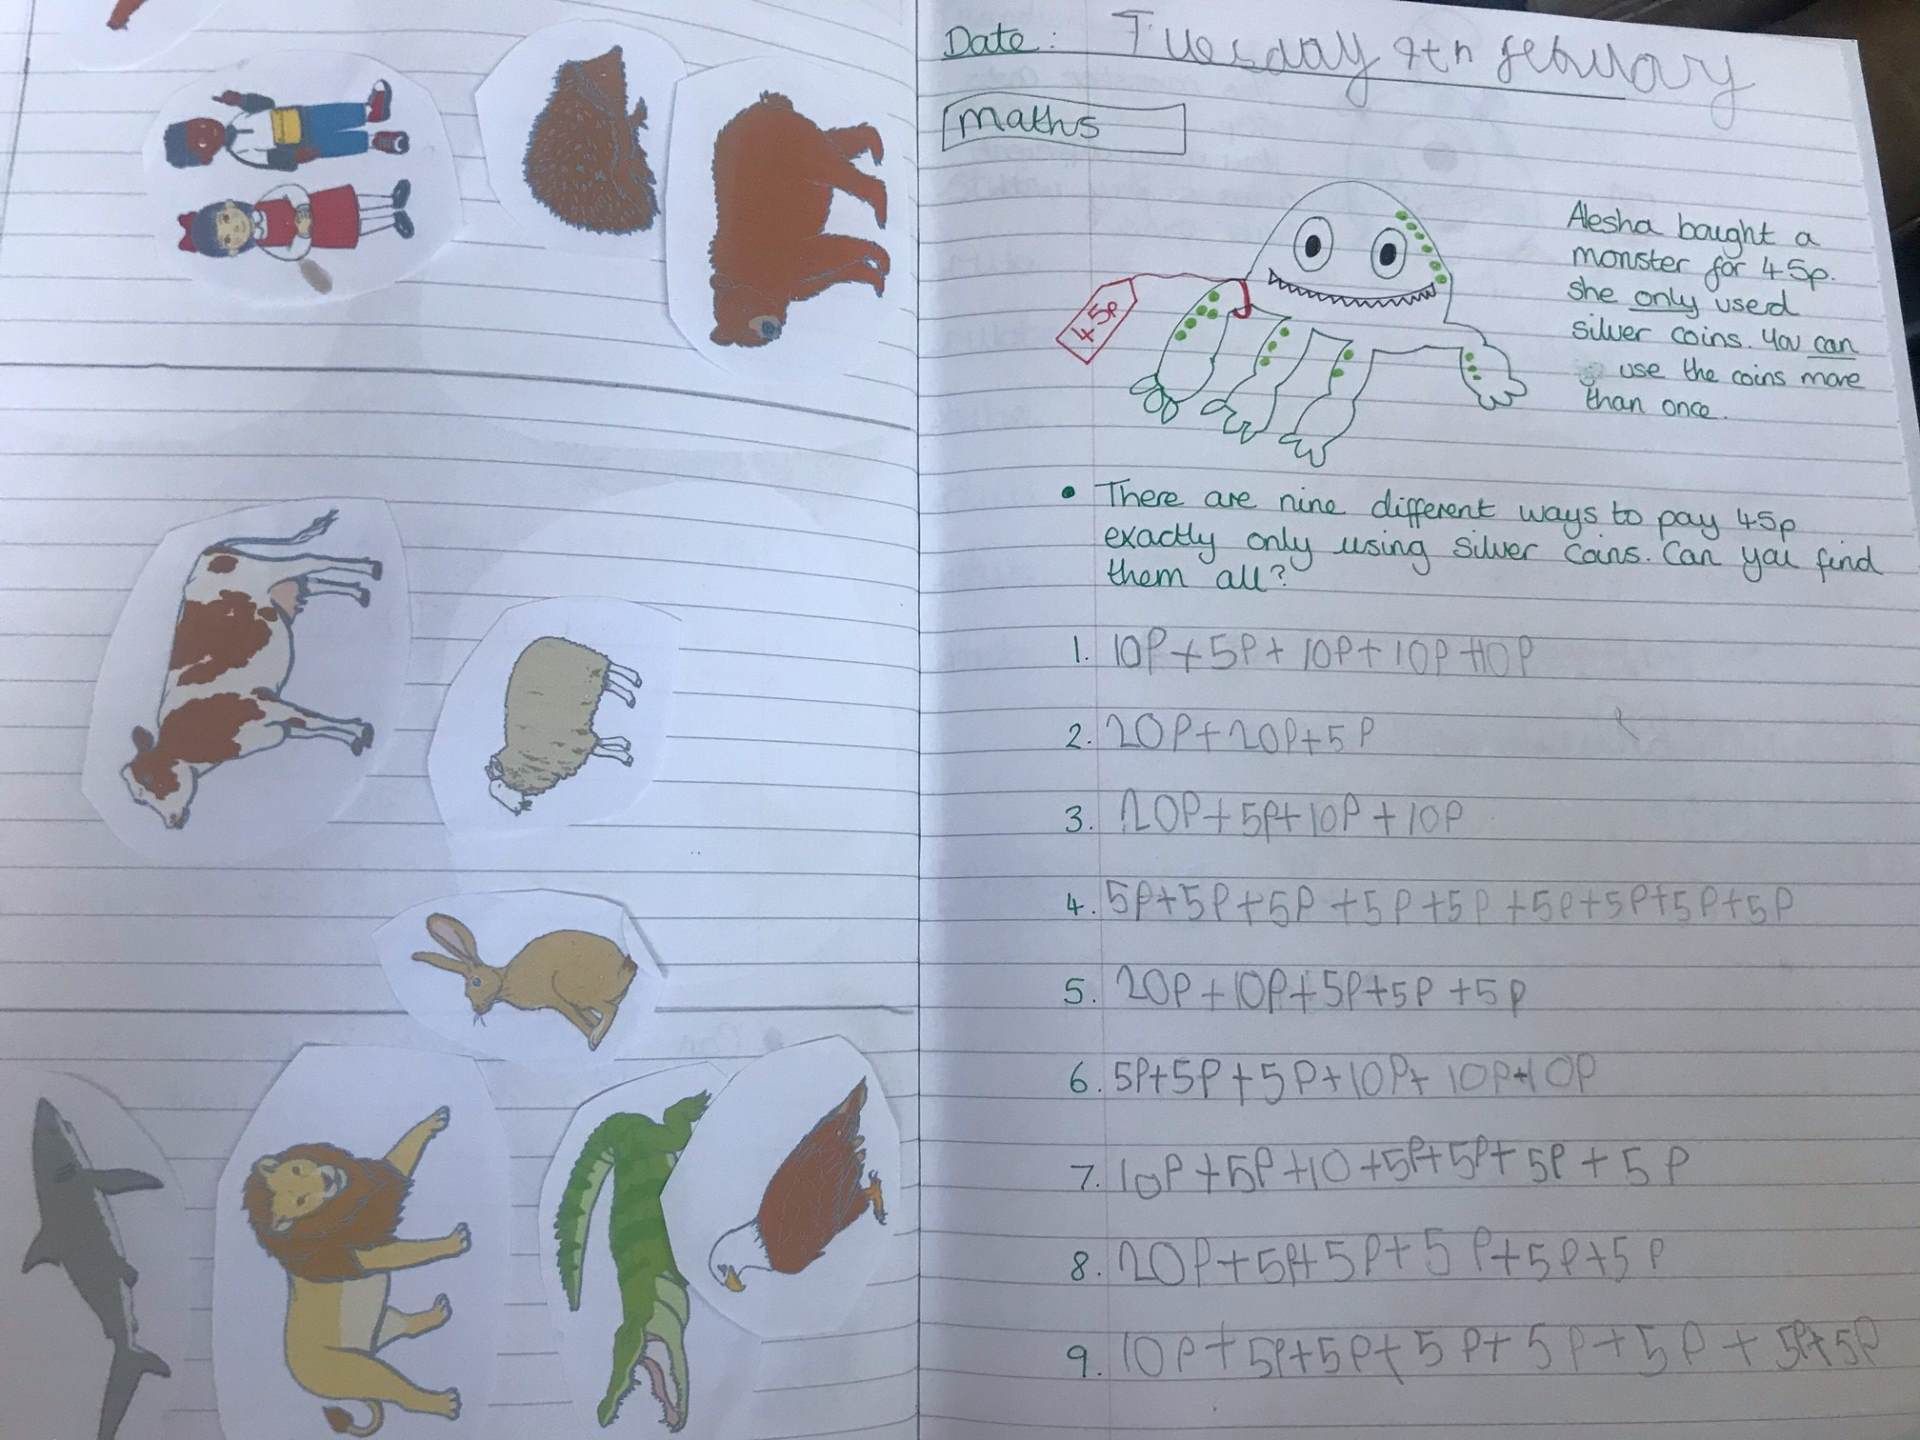 Date: Tuesday 9th february
maths
45p
Alesha bought a
monster for 45p.
She only used
silver coins. You can
use the coins more
than once.
• There are nine different ways to pay 45p
exactly only using silver coins. Can you find
them all?
1. 10P+5P+10P+10P+10P
2. 20P+20P+5P
3. 20P+5P+10P+10P
4. 5P+5P+5P+5P+5P+5P+5P+5P+5P
5. 20P+10P+5P+5P+5P
6. 5P+5P+5P+10P+10P+10P
7. 10P+5P+10+5P+5P+5P+5P
8. 20P+5P+5P+5P+5P+5P
9. 10P+5P+5P+5P+5P+5P+5P+5P